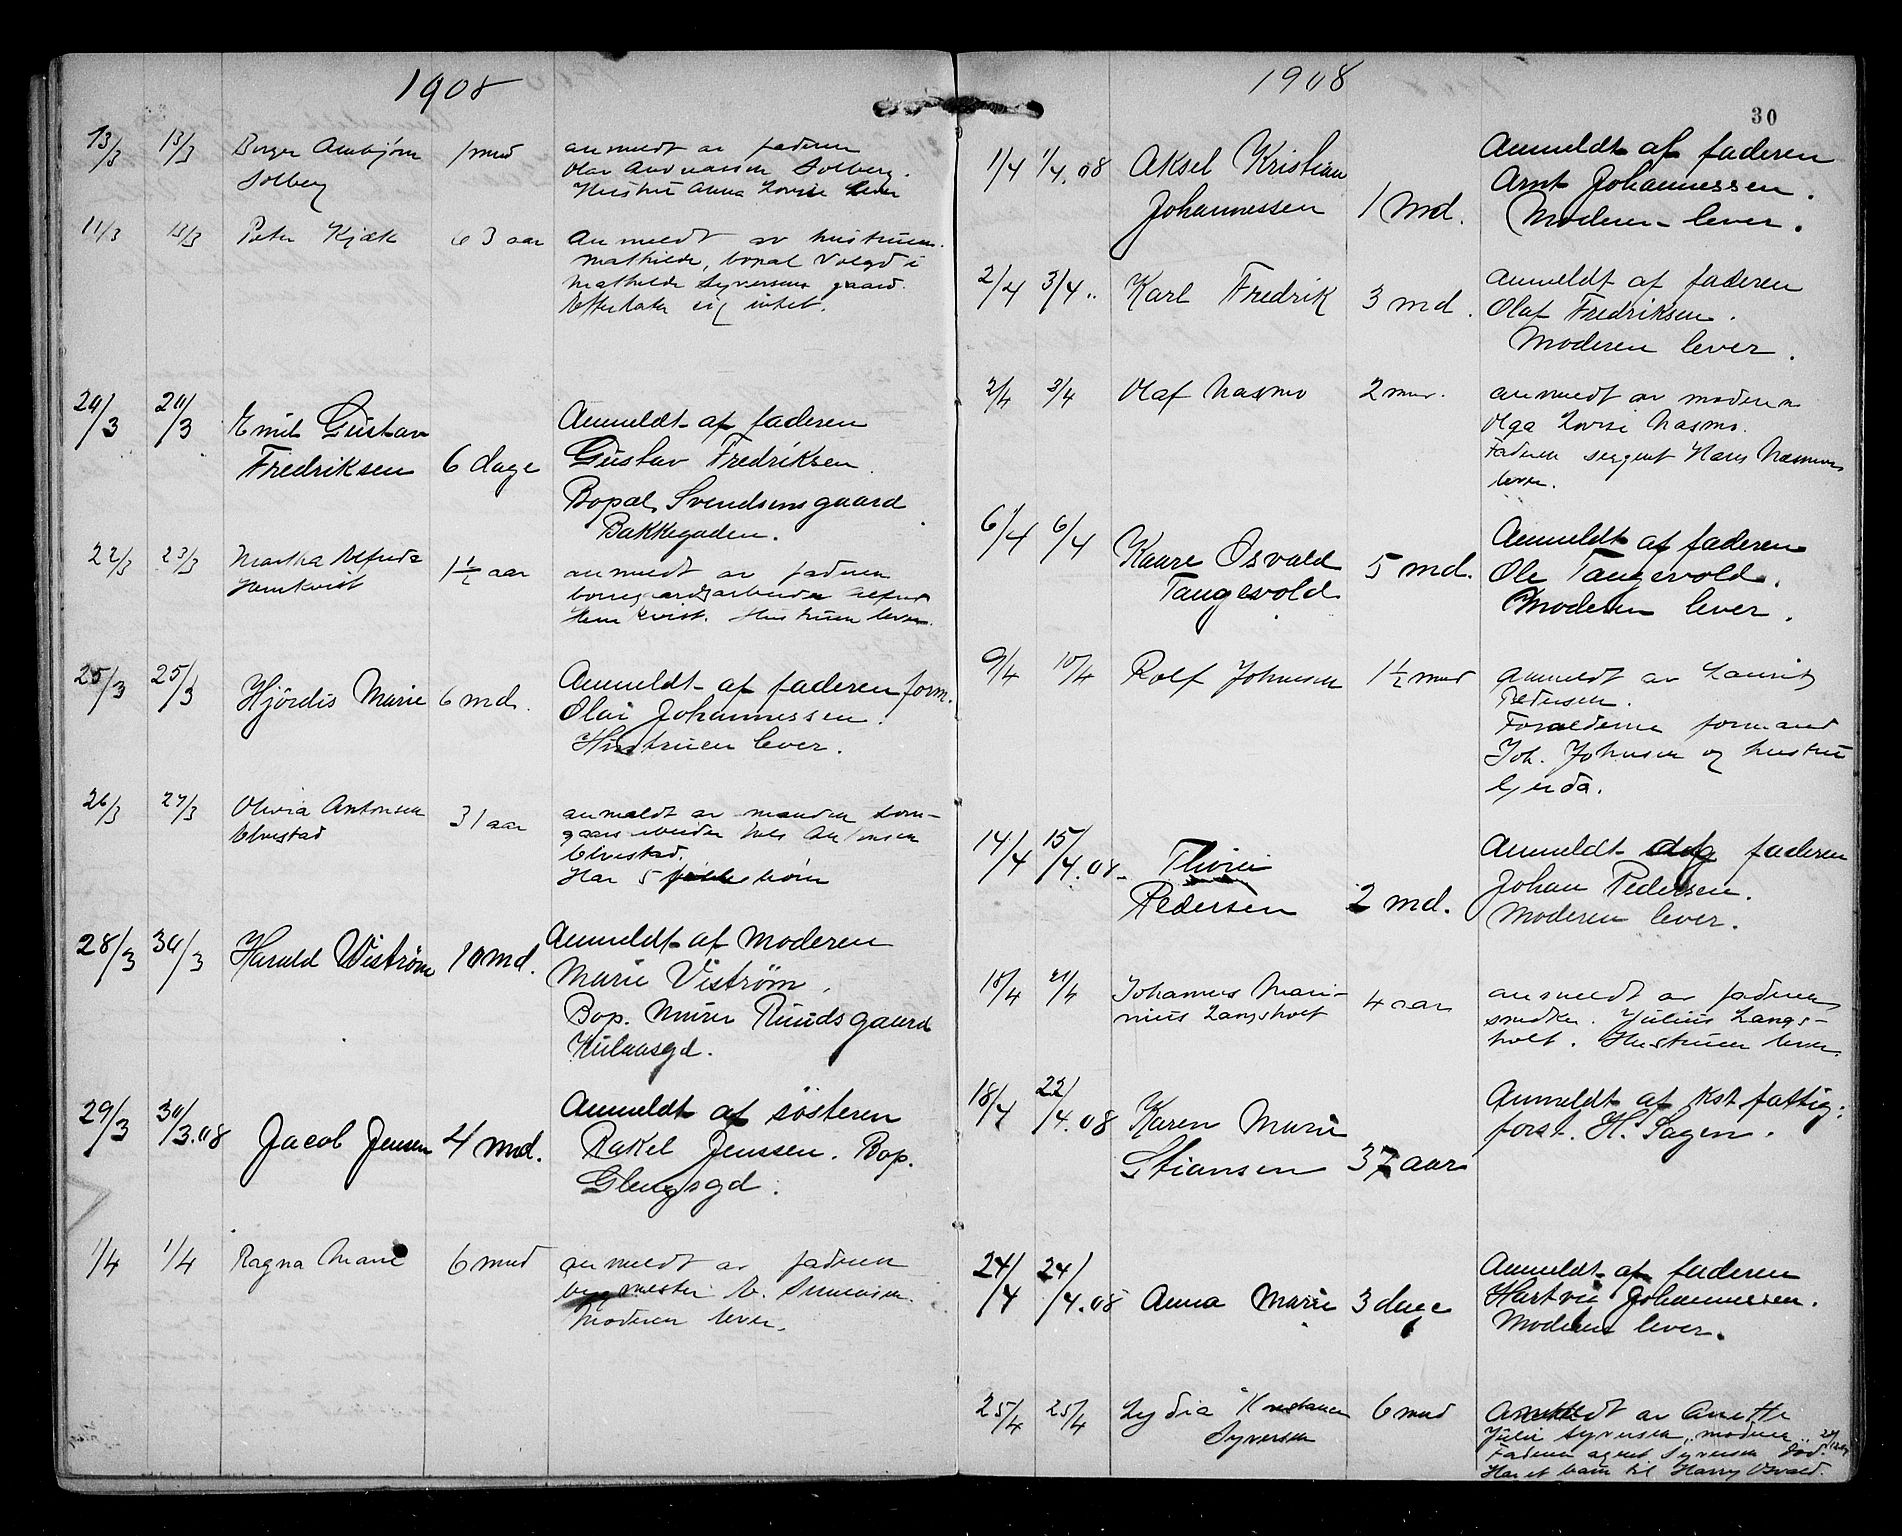 1908
13/3 13/3 Birger Arnbjørn 1 mnd anmeldt av faderen
Solberg Olav Andreassen Solberg.
Hustru Anna Lovise lever
11/3 13/3 Peter Kjæk 63 aar anmeldt av hustruen
Mathilde, bopæl Volgd i
Mathilde Syversens gaard.
Efterlater sig intet.
20/3 20/3 Emil Gustav Anmeldt af faderen
Fredriksen 6 dage Gustav Fredriksen.
Bopæl Svendsensgaard
Bakkegaden.
22/3 23/3 Martha Alfride 1½ aar anmeldt av faderen
Hernkvist borregaardsarbeider Alfred
Hernkvist. Hustruen lever.
25/3 25/3 Hjördis Marie 6 md. Anmeldt af faderen form.
Olai Johannessen.
Hustruen lever.
26/3 27/3 Olivia Antonsen 31 aar anmeldt av manden bom-
Elvestad gaarsarbeider Antonsen
Elvestad.
Har 5 børn
28/3 30/3 Harald Wiström 10 md. Anmeldt af Moderen
Marie Viström.
Bop. Murer Ruudsgaard
Kulaasgd.
29/3 30/3.08 Jacob Jensen 4 md. Anmeldt af søsteren
Rakel Jenssen. Bop.
Glengsgd.
1/4 1/4 Ragna Marie 6 mnd anmeldt av faderen
bygmester
Moderen lever.
1908
30
1/4 1/4.08 Aksel Kristian Anmeldt af faderen
Johannessen 1 Md. Arnt Johannessen.
Moderen lever.
2/4 3/4 „ Karl Fredrik 3 md. Anmeldt af faderen
Olaf Fredriksen.
Moderen lever.
2/4 3/4 Olaf Næsmo 2 mnd. anmeldt av moderen
Olga Lovise Næsmo.
Faderen sergent Hans Næsmo
lever.
6/4 6/4 Kaare Osvald 5 md. Anmeldt af faderen
Tangevold Ole Tangevold.
Moderen lever.
9/4 10/4 Rolf Johnsen 1½ mnd anmeldt av Laurits
Pedersen.
Forælderne formand
Joh. Johnsen og hustru
Gerda.
14/4 15/4.08 Anmeldt faderen
Pedersen 2 md. Johan Pedersen.
Moderen lever.
18/4 21/4 Johannes Mari- 4 aar anmeldt av faderen
nius Langsholt snedker. Julius Langs-
holt. Hustruen lever.
18/4 22/4.08 Karen Marie Anmeldt af kst fattig:
Stiansen 37 aar forst. H. Sagen.
24/4 24/4.08 Anna Marie 3 dage Anmeldt af faderen
Hartvie Johannessen.
Moderen lever.
25/4 25/4 Lydia Konstanse 6 mnd Anmeldt av Anette
Syversen Julie Syversen, moderen
Faderen agent Syversen død.
Har et barn til Harry Osvald.